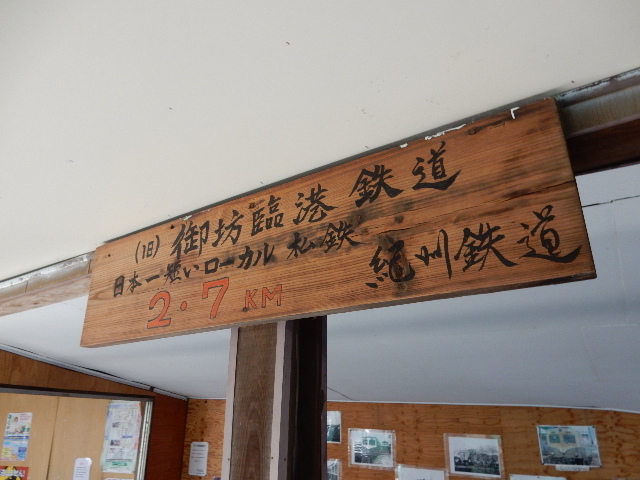 (旧) 御坊臨港鉄道
日本一短いローカル私鉄
2.7KM
紀州鉄道